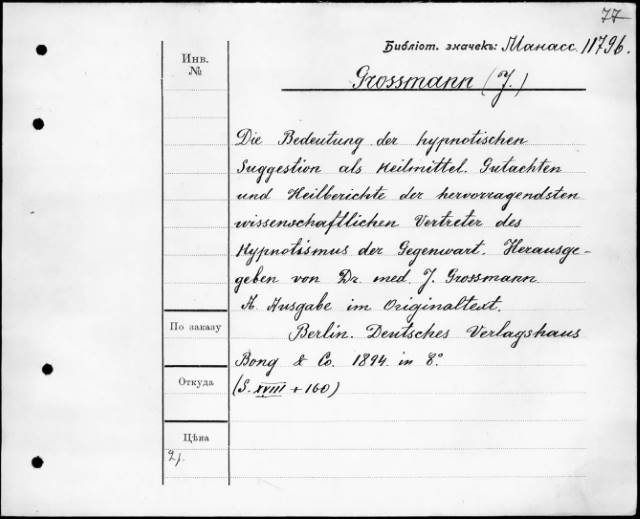 77
Библіот. значекъ: Манасс. 11796.
Инв.
№
Grossmann (J.)
Die Bedeutung der hypnotischen
Suggestion als Heilmittel. Gutachten
und Heilberichte der hervorragendsten
wissenschaftlichen Vertreter des
Hypnotismus der Gegenwart. Herausge-
geben von Dr. med. J. Grossmann.
A. Ausgabe im Originaltext.
По заказу
Berlin. Deutsches Verlagshaus
Bong & Co. 1894. in 8°.
Откуда
(S. XVIII + 160)
Цѣна